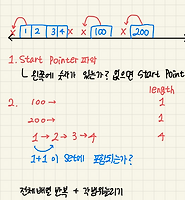 x 1 2 3 4 x x 100 x 200
1. Start Pointer 파악
↳ 왼쪽에 숫자가 있는가? 없으면 Start Point
length
2. 100 → 1
200 → 1
1 → 2 → 3 → 4 4
1+1 이 Set에 포함되는가?
전체배열 반복 +